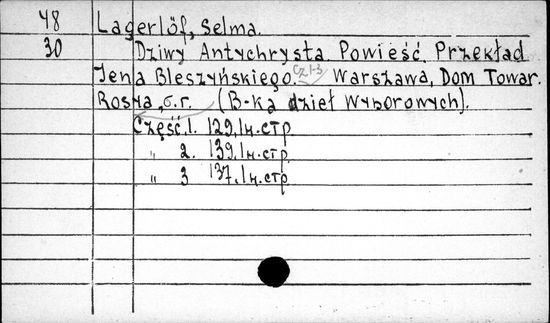 48 Lagerlöf, Selma.
30 Dziwy Antychrysta. Powieść. Przekład
Jena Bleszyńskiego. cz 1-3 Warszawa, Dom Towar.
Rosya, б.г. (B-ka dzieł wyborowych).
Część 1. 129, 1 н. стр
" 2. 139, 1 н. стр
" 3 137, 1 н. стр